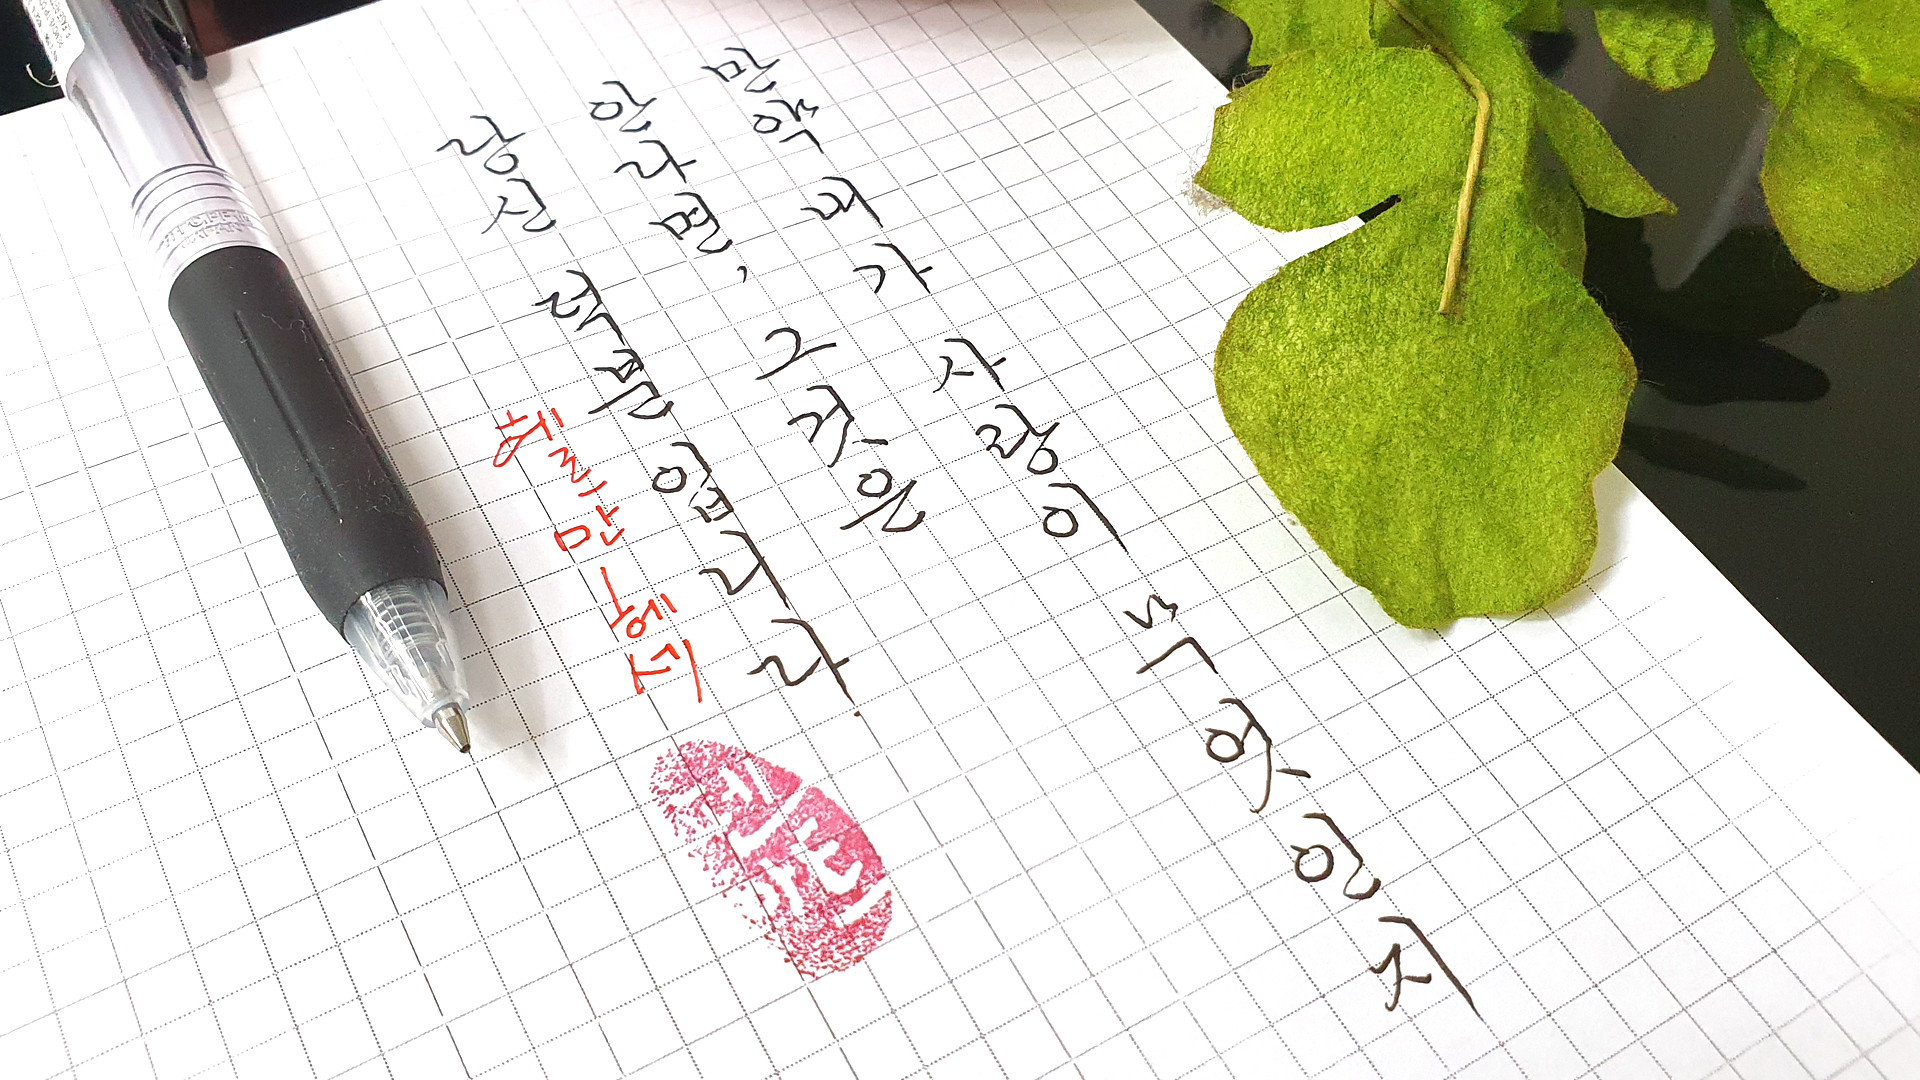 만약 내가 사랑이 무엇인지
안다면, 그것은
당신 덕분입니다.
헤르만 헤세